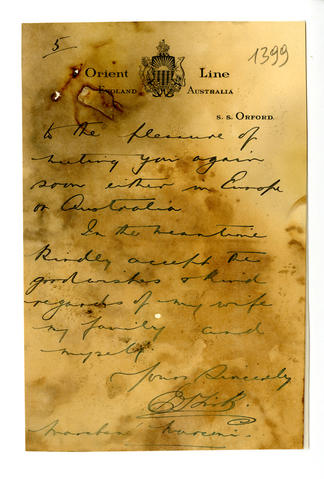 5
1399
Orient Line
England Australia
S. S. Orford
to the pleasure of
meeting you again
soon either in Europe
or Australia
In the meantime
kindly accept the
good wishes & kind
regards of my wife
my family and
myself.
Yours Sincerely
Marchese Marconi.